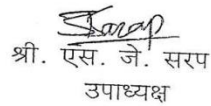 श्री. एस. जे. सरप
उपाध्यक्ष